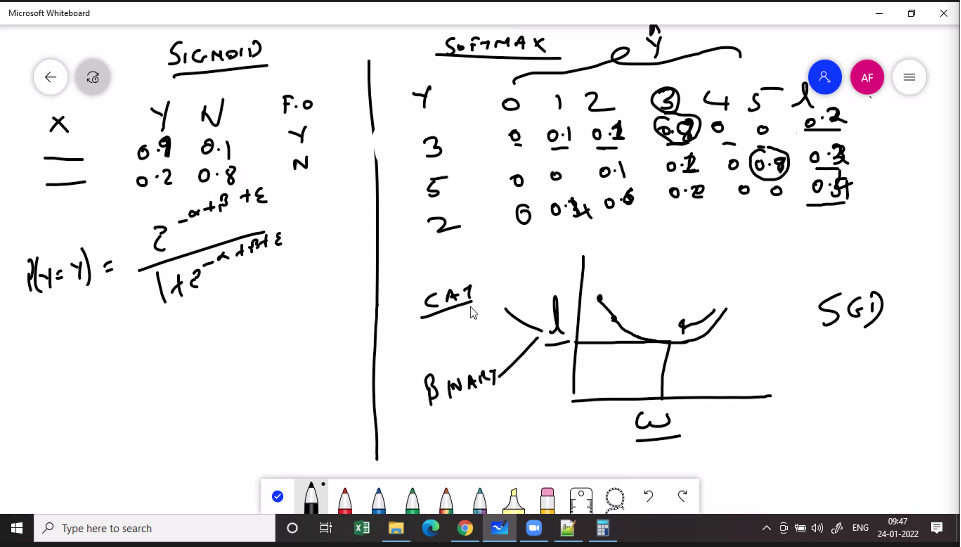 Microsoft Whiteboard
SIGMOID
X Y N F.O
0.9 0.1 Y
0.2 0.8 N
P(Y=Y) = e^-α+β+ε / 1+e^-α+β+ε
SOFTMAX
Ŷ
Y 0 1 2 3 4 5 l
3 0 0.1 0.1 0.8 0 0 0.2
5 0 0 0.1 0 0.2
2 0 0.2 0 0
AF
CAT
BINARY
l
ω
SGD
Type here to search
ENG
09:47
24-01-2022